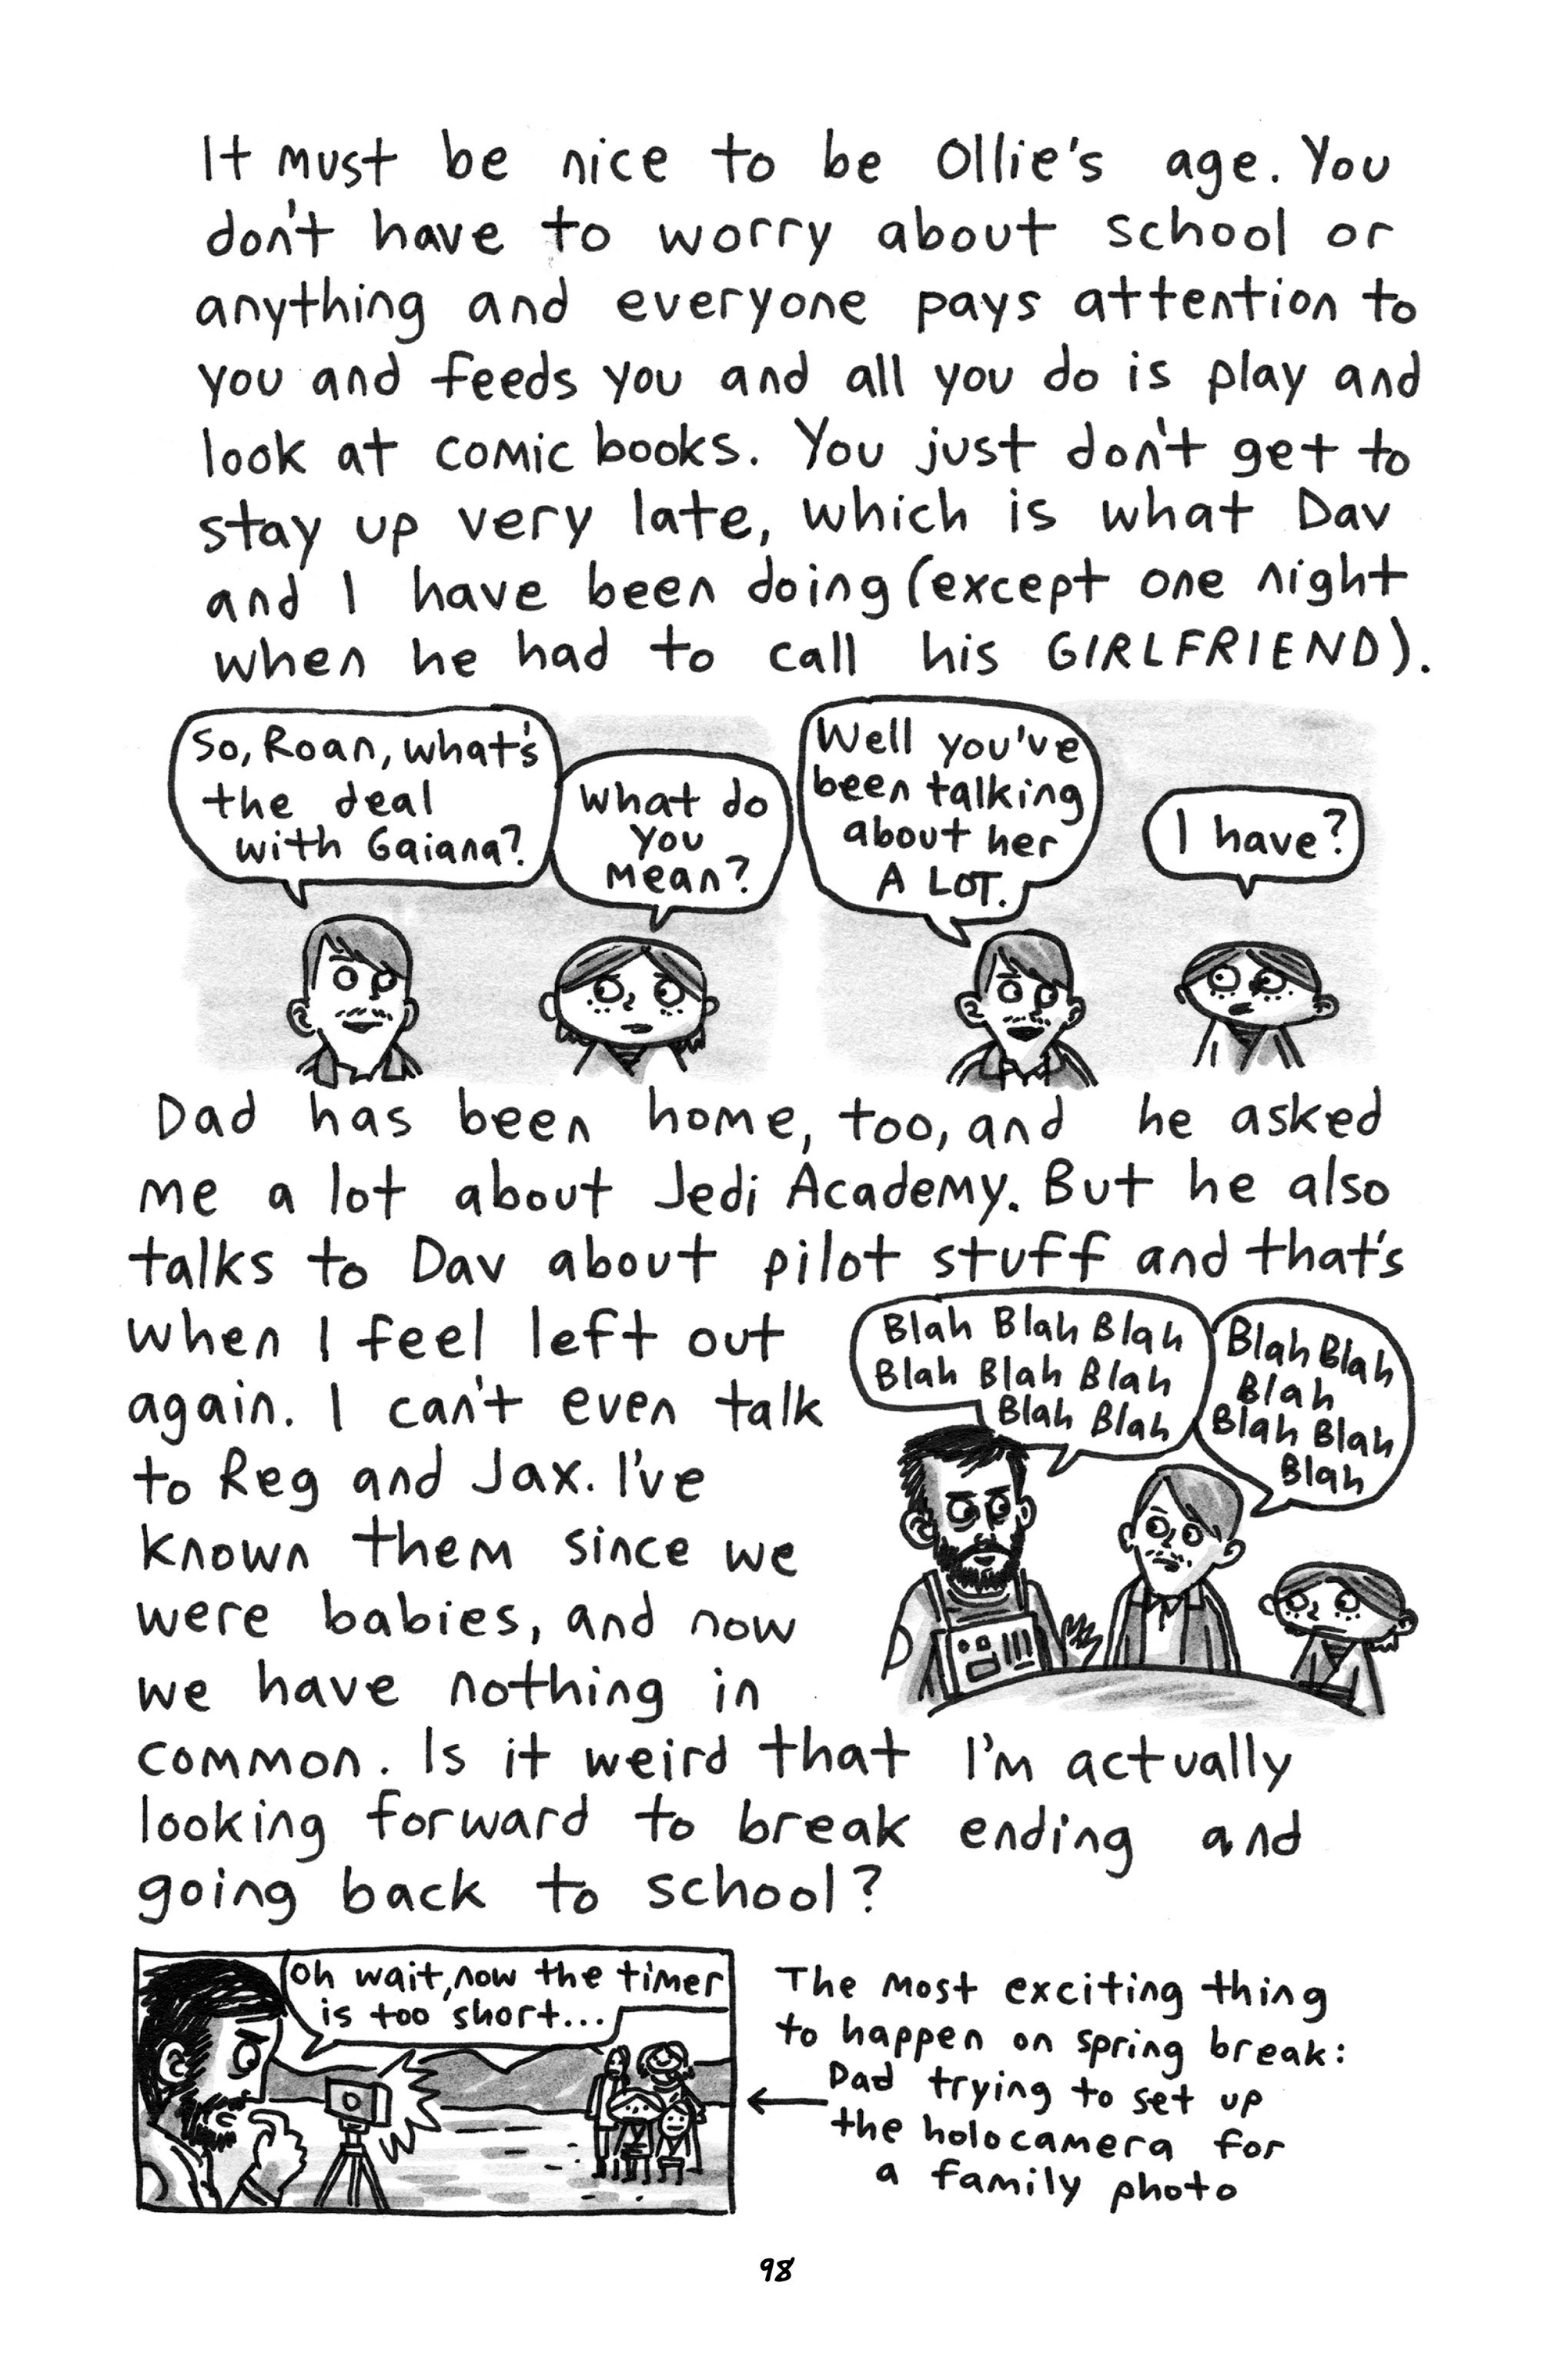 It must be nice to be Ollie's age. You
don't have to worry about school or
anything and everyone pays attention to
you and feeds you and all you do is play and
look at comic books. You just don't get to
stay up very late, which is what Dav
and I have been doing (except one night
when he had to call his GIRLFRIEND).
So, Roan, what's
the deal
with Gaiana?
What do
you
mean?
Well you've
been talking
about her
A LOT.
I have?
Dad has been home, too, and he asked
me a lot about Jedi Academy. But he also
talks to Dav about pilot stuff and that's
when I feel left out
again. I can't even talk
to Reg and Jax. I've
known them since we
were babies, and now
we have nothing in
common. Is it weird that I'm actually
looking forward to break ending and
going back to school?
Blah Blah Blah
Blah Blah Blah
Blah Blah
Blah Blah
Blah
Blah Blah
Blah
Oh wait, now the timer
is too short...
The most exciting thing
to happen on spring break:
Dad trying to set up
the holocamera for
a family photo
98